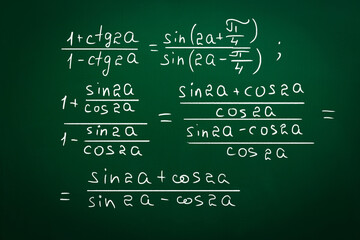 (1+ctg2a)/(1-ctg2a) = sin(2a+π/4)/sin(2a-π/4) ;
(1+sin2a/cos2a)/(1-sin2a/cos2a) = ((sin2a+cos2a)/cos2a)/((sin2a-cos2a)/cos2a) =
= (sin2a+cos2a)/(sin2a-cos2a)